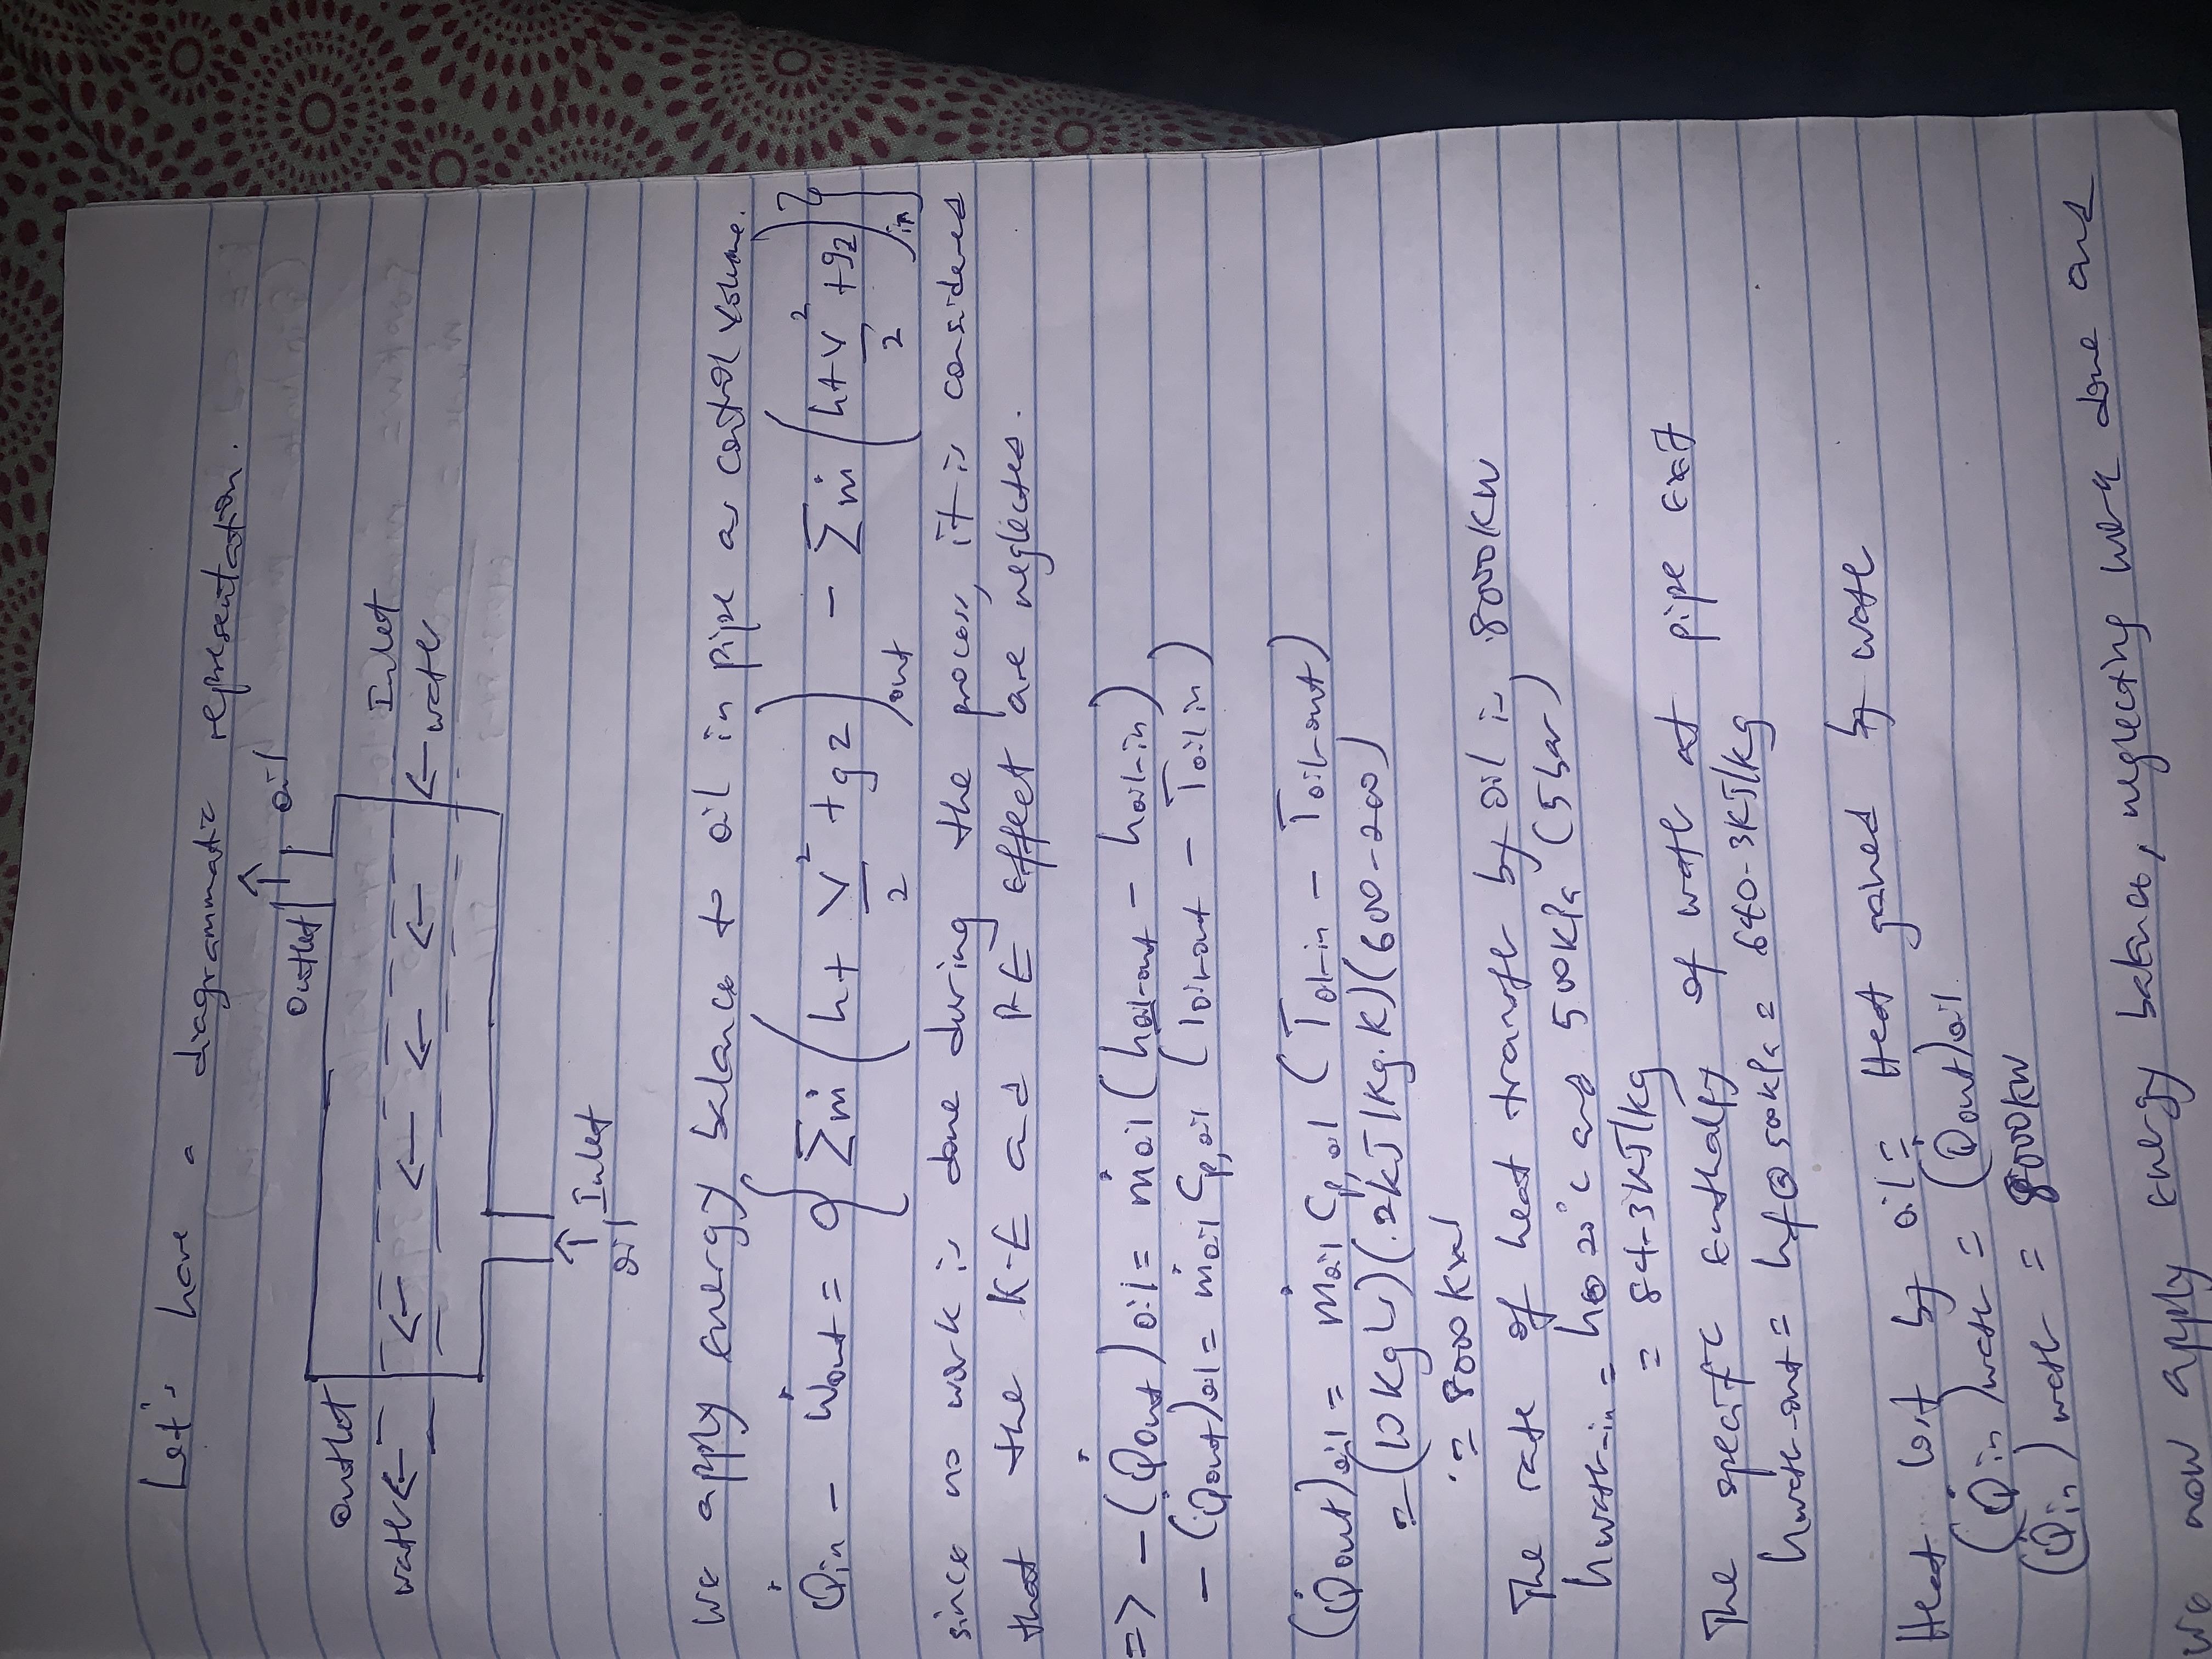 Let's have a diagrammatic representation.
outlet
oil
outlet
Inlet
water
water
Inlet
oil
We apply energy balance to oil in pipe as control volume.
Q̇in - Ẇout = {Σṁ(h + V²/2 + gz)out - Σṁ(h + V²/2 + gz)in}
since no work is done during the process, it is considered
that the K-E and P.E effect are neglected.
=> -(Q̇out)oil = ṁoil (hoil-out - hoil-in)
-(Q̇out)oil = ṁoil Cp,oil (Toil-out - Toil in)
(Q̇out)oil = ṁoil Cp,oil (Toil-in - Toil-out)
= (10kg/s)(.2kJ/kg.K)(600-200)
= 8000kW
The rate of heat transfer by oil is 8000kW
hwater-in = h@ 20°c and 500kPa (5bar)
= 84.3kJ/kg
The specific enthalpy of water at pipe exit
hwater-out = hf@500kPa = 640.3kJ/kg
Heat lost by oil = Heat gained by water
(Q̇in)water = (Q̇out)oil
(Q̇in)water = 8000kW
we now apply energy balance, neglecting work done and